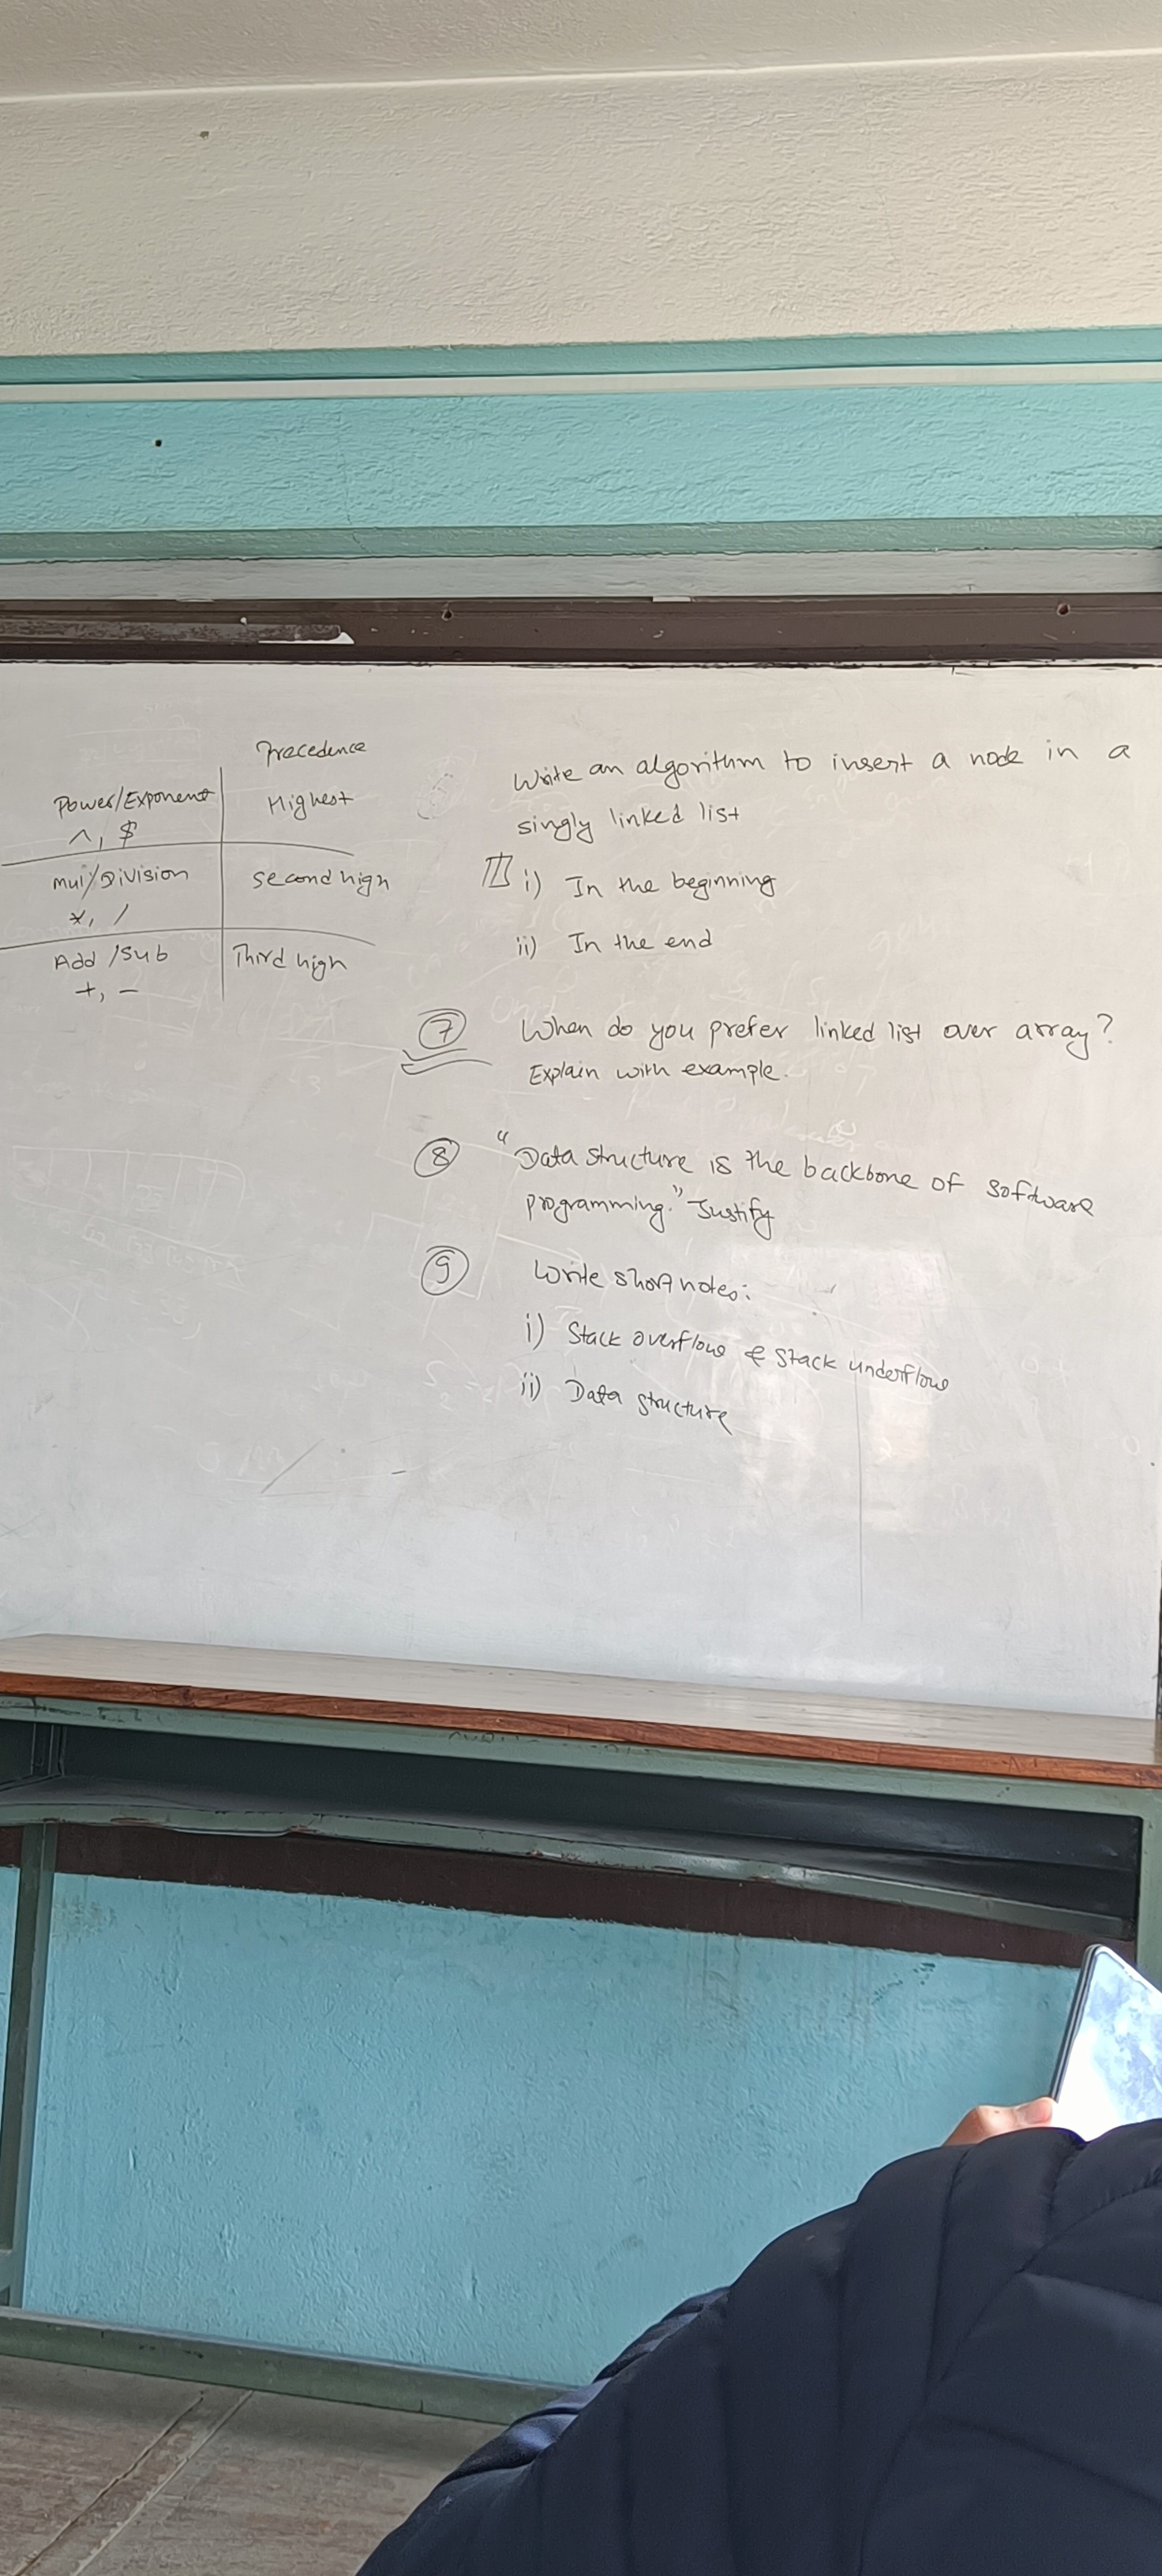 Precedence
Power/Exponent Highest
^, $
Mul/Division Second high
*, /
Add /Sub Third high
+, -
Write an algorithm to insert a node in a
singly linked list
i) In the beginning
ii) In the end
7 When do you prefer linked list over array?
Explain with example.
8 "Data structure is the backbone of software
programming." Justify
9 Write short notes:
i) Stack overflow & Stack underflow
ii) Data structure